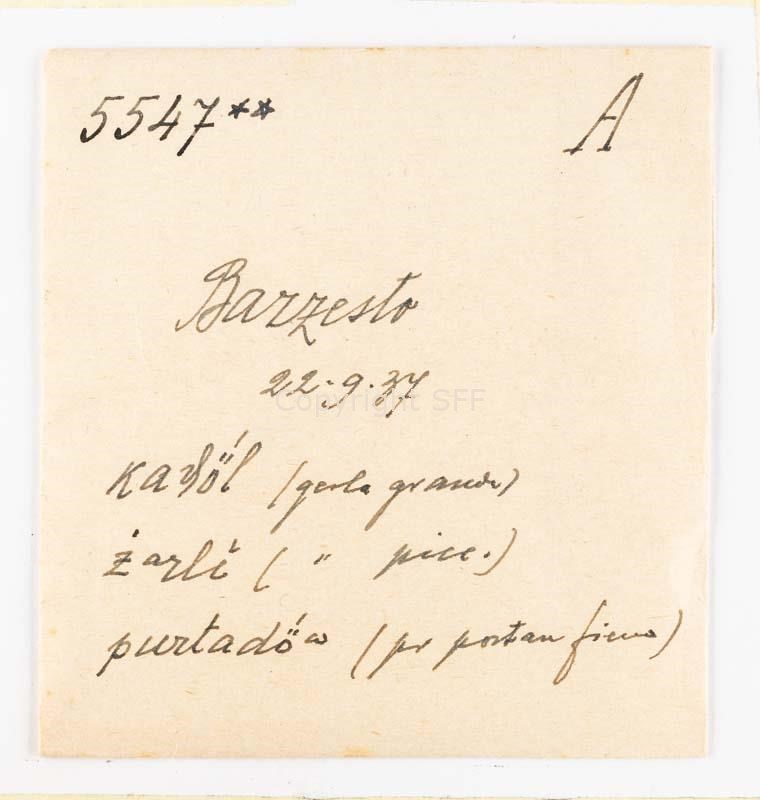 5547** A
Barzesto
22.9.37
Copyright SFF
(gerla grande)
żarlì ( " picc.)
(pr portar fieno)